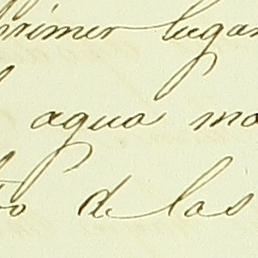 primer lugar
agua ma
to de las